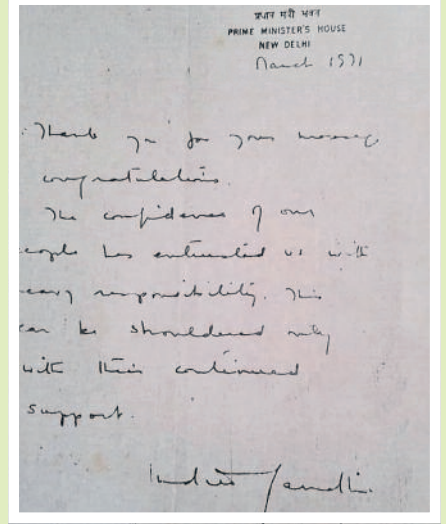 प्रधान मंत्री भवन
PRIME MINISTER'S HOUSE
NEW DELHI
March 1971
Thank you for your message
congratulations.
The confidence of our
eople has entrusted us with
eavy responsibility. This
can be shouldered only
with their continued
support.
Indira Gandhi.